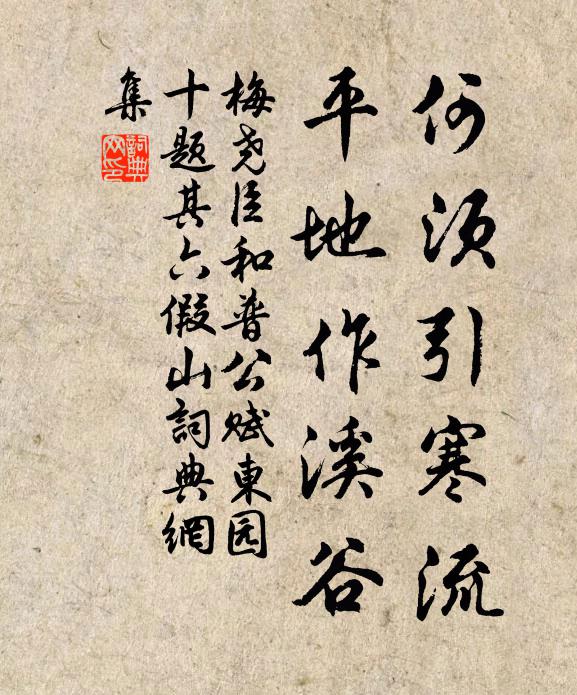 何须引寒流
平地作溪谷
梅尧臣和普公赋東园
十题其六假山詞典網
集
詞典网印